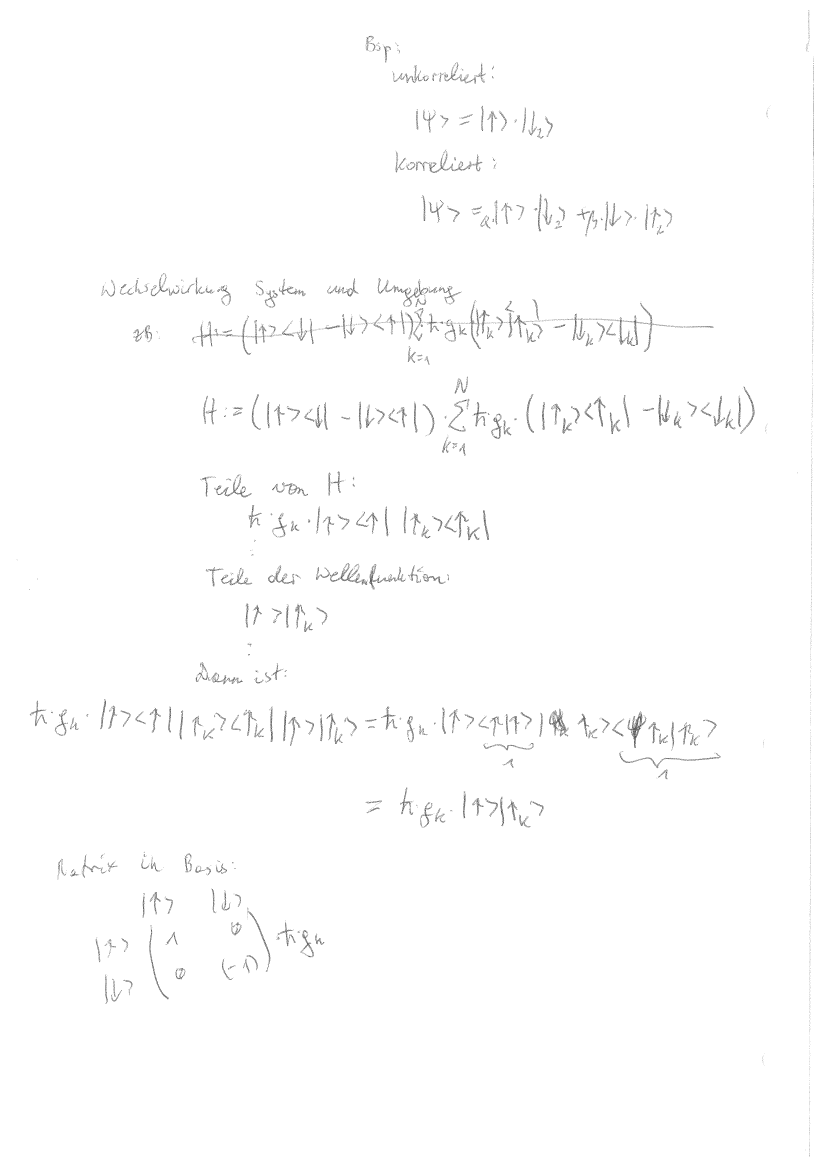 Bsp:
unkorreliert:
|ψ> = |↑> · |↓₂>
korreliert:
|ψ> = α·|↑> · |↓₂> + β·|↓> · |↑₂>
Wechselwirkung System und Umgebung
zb: H := (|↑><↓| − |↓><↑|) ∑ₖ₌₁ᴺ ħ·gₖ (|↑ₖ><↑ₖ| − |↓ₖ><↓ₖ|)
H := (|↑><↓| − |↓><↑|) · ∑ₖ₌₁ᴺ ħ·gₖ · (|↑ₖ><↑ₖ| − |↓ₖ><↓ₖ|)
Teile von H:
ħ·gₖ · |↑><↑| |↑ₖ><↑ₖ|
⋮
Teile der Wellenfunktion:
|↑>|↑ₖ>
⋮
Dann ist:
ħ·gₖ · |↑><↑| |↑ₖ><↑ₖ| |↑>|↑ₖ> = ħ·gₖ · |↑><↑|↑> |↑ₖ><↑ₖ|↑ₖ>
1 1
= ħ·gₖ · |↑>|↑ₖ>
Matrix in Basis:
|↑> |↓>
|↑> ( 1 0 ) · ħ·gₖ
|↓> ( 0 (−1) )